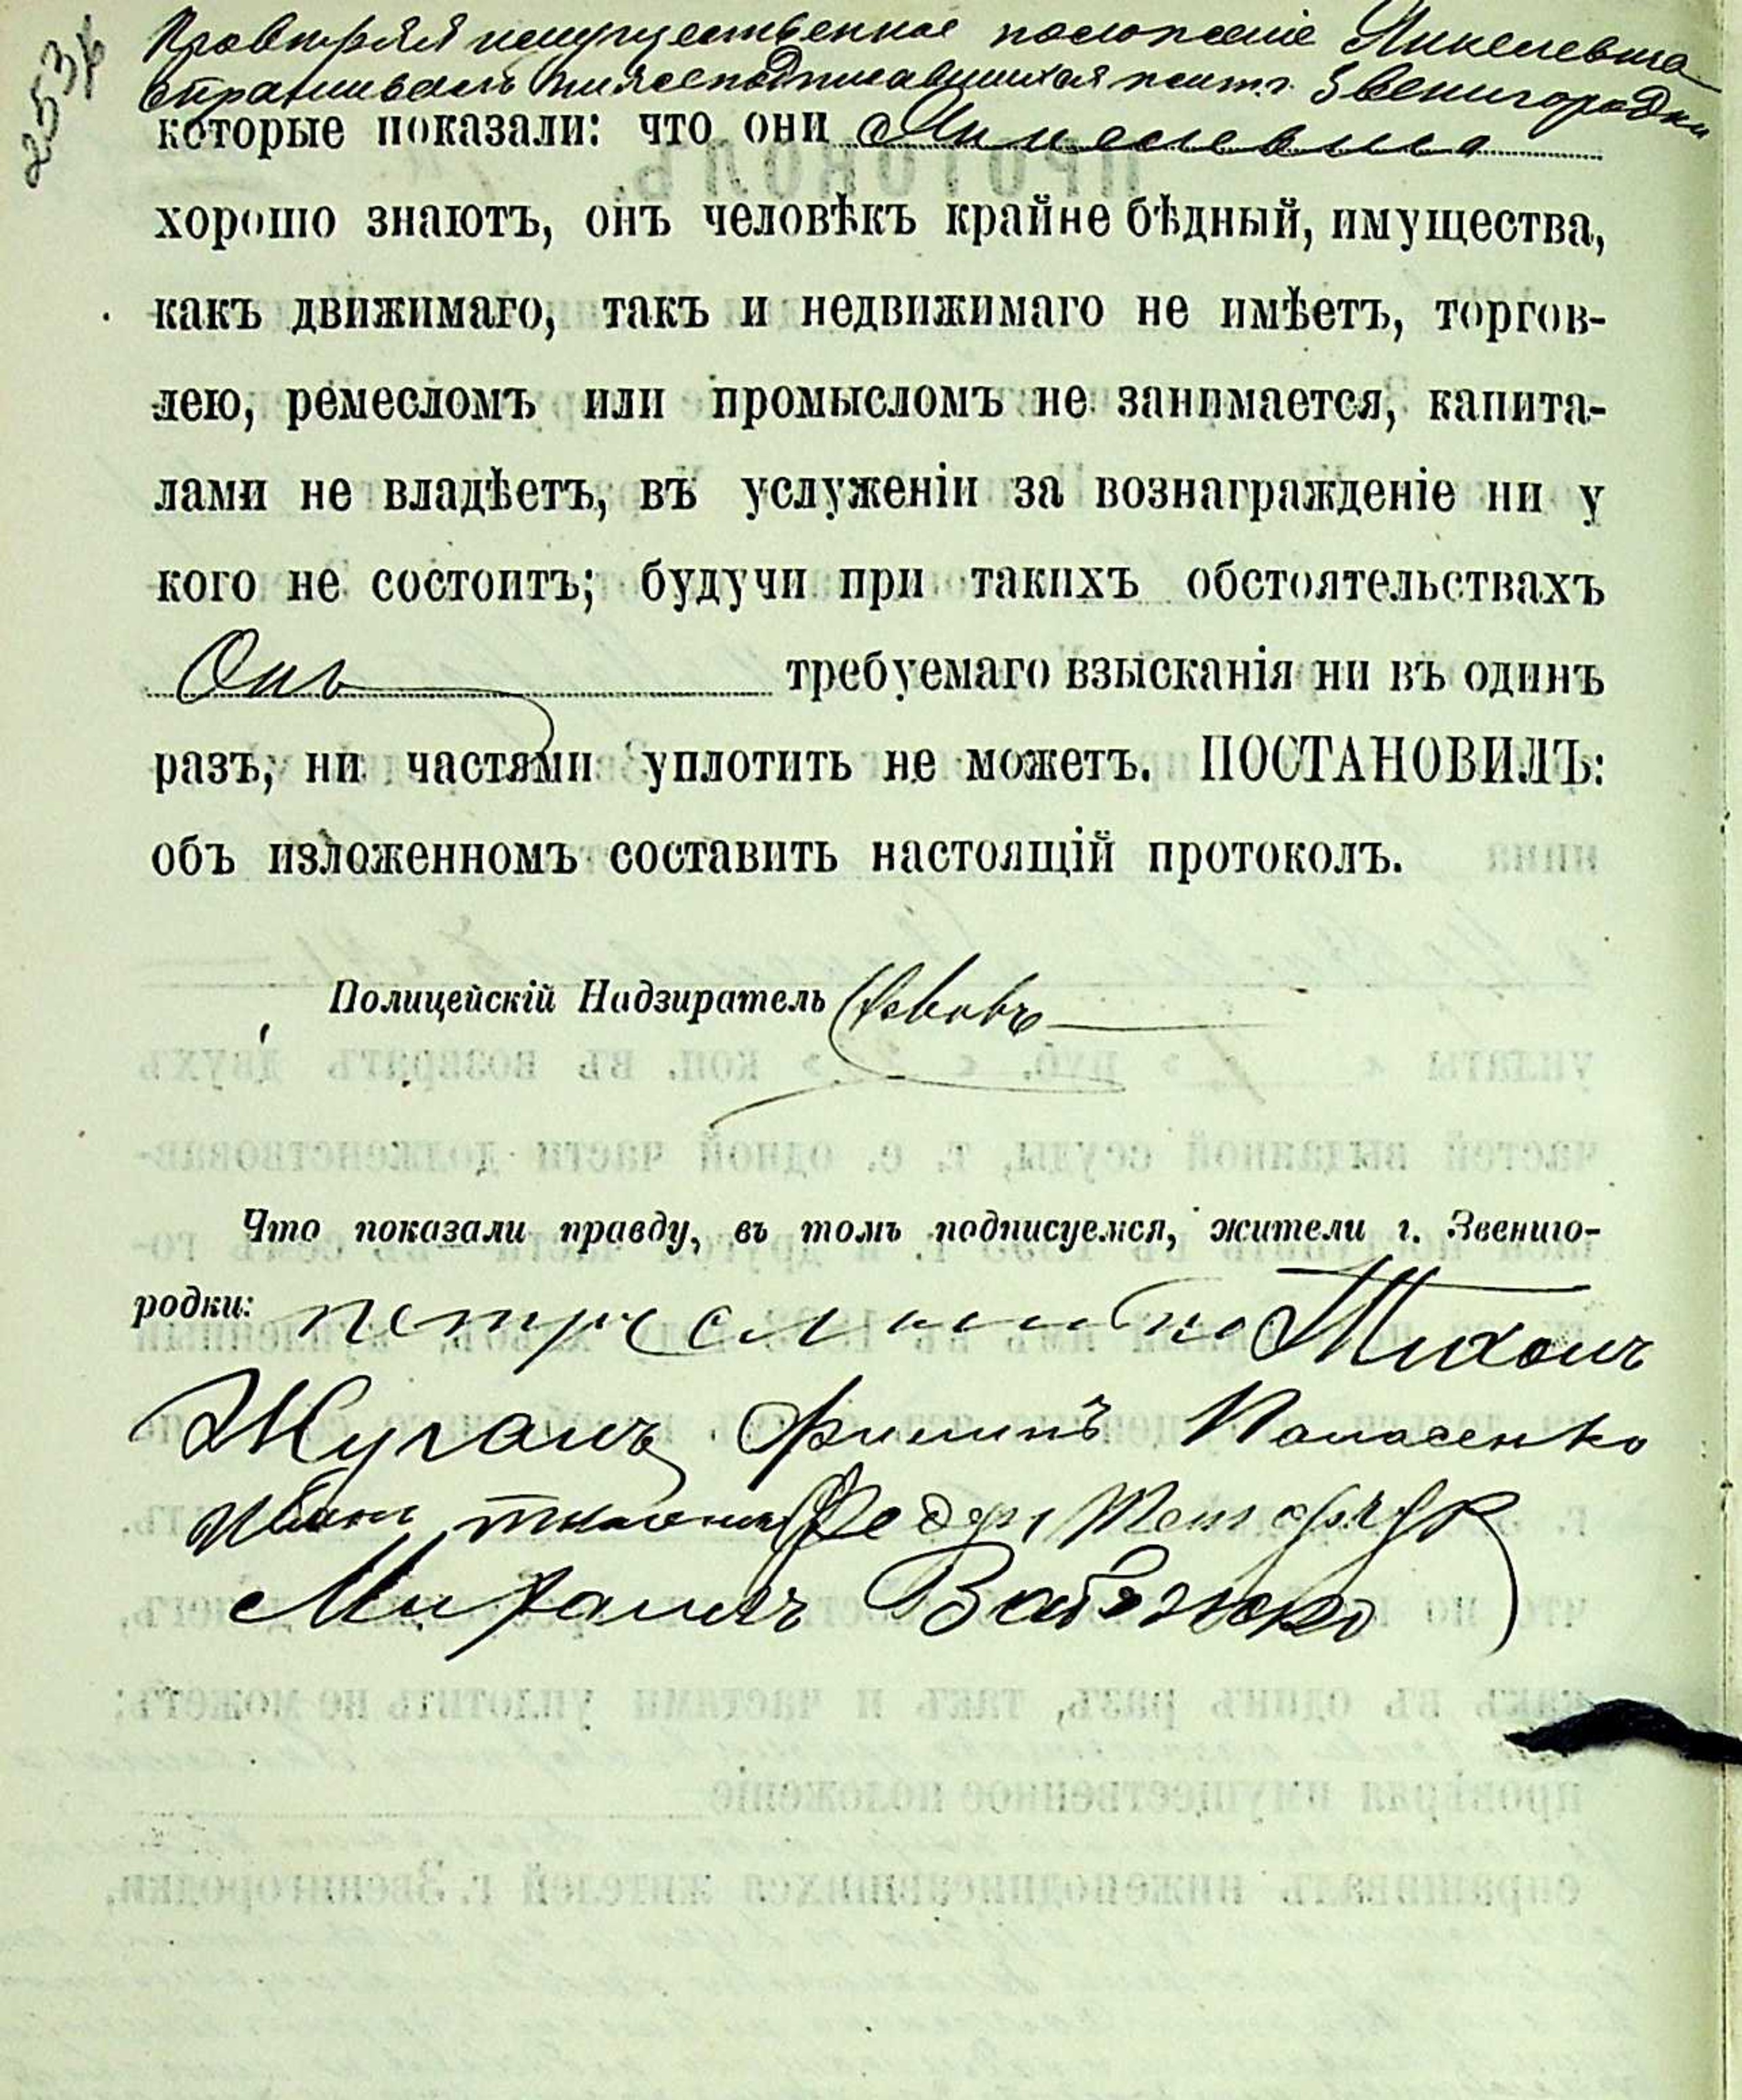 253
Провѣряя имущественное положеніе
спрашивалъ нижеподписавшихся жит. г. Звенигородки
которые показали: что они
хорошо знаютъ, онъ человѣкъ крайне бѣдный, имущества,
какъ движимаго, такъ и недвижимаго не имѣетъ, торгов-
лею, ремесломъ или промысломъ не занимается, капита-
лами не владѣетъ, въ услуженіи за вознагражденіе ни у
кого не состоитъ; будучи при такихъ обстоятельствахъ
Онъ требуемаго взысканія ни въ одинъ
разъ, ни частями уплотить не можетъ. ПОСТАНОВИЛЪ:
объ изложенномъ составить настоящій протоколъ.
Полицейскій Надзиратель
Что показали правду, въ томъ подписуемся, жители г. Звениго-
родки: петръ Тихонъ
Жуганъ Филипъ Панасенко
Иван Федор
Михаилъ